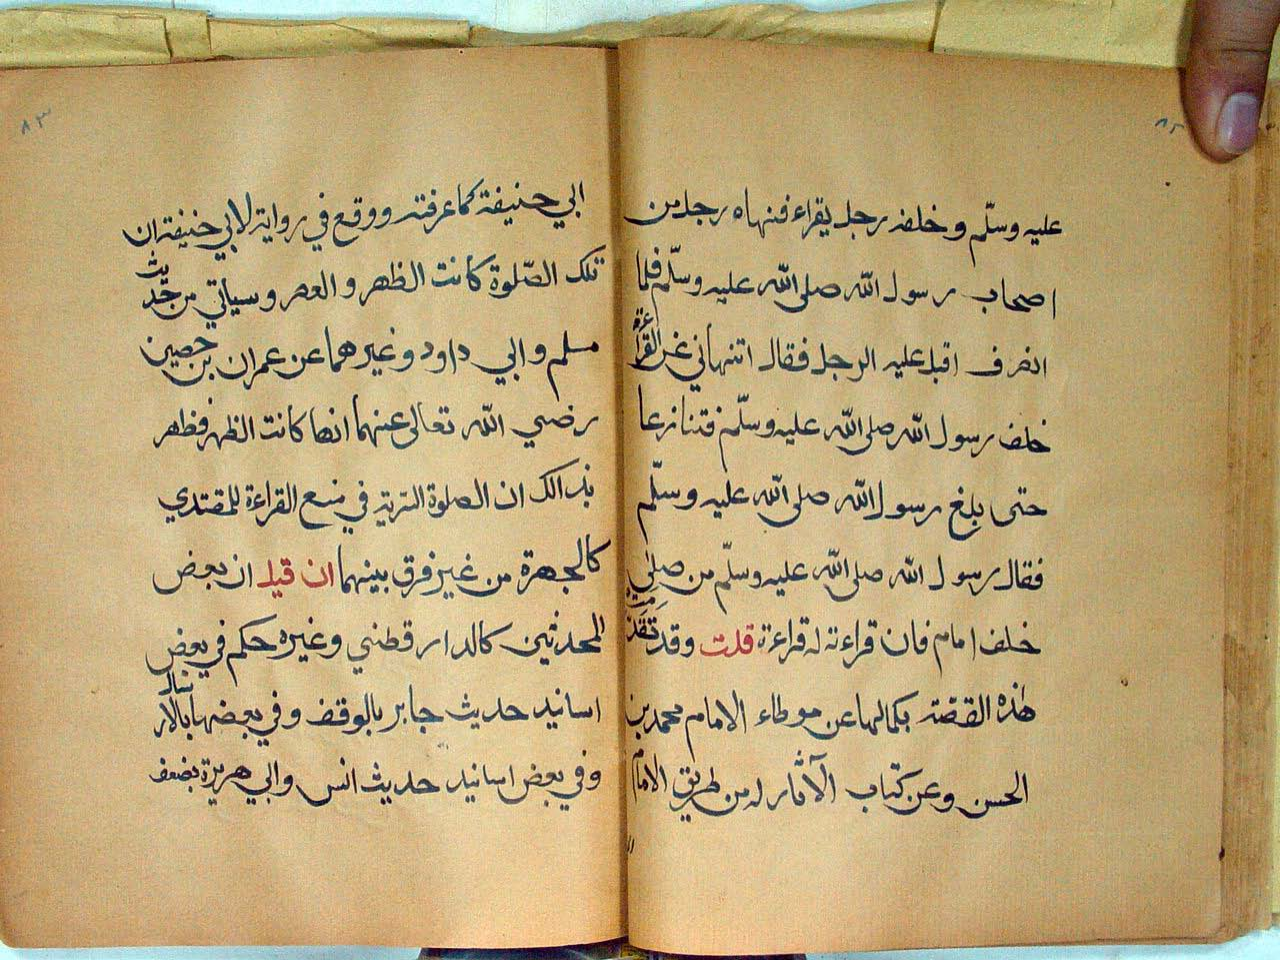 ٨٢
عليه وسلّم وخلفه رجل يقراء فنهاه رجل من
اصحاب رسول الله صلى الله عليه وسلّم فلما
انصرف اقبل عليه الرجل فقال اتنهاني عن القراءة
خلف رسول الله صلى الله عليه وسلّم فتنازعا
حتى بلغ رسول الله صلى الله عليه وسلّم
فقال رسول الله صلى الله عليه وسلّم من صلى
خلف امام فان قراءته له قراءة قلت وقد تقدمت
هذه القصّة بكمالها عن موطاء الامام محمد بن
الحسن وعن كتاب الآثار له من طريق الامام
٨٣
ابي حنيفة كما عرفته ووقع في رواية لابي حنيفة ان
تلك الصّلوة كانت الظهر و العصر وسياتي من حديث
مسلم وابي داود وغيرهما عن عمران بن حصين
رضي الله تعالى عنهما انها كانت الظهر فظهر
بذالك ان الصلوة السّرية في منع القراءة للمقتدي
كالجهرة من غير فرق بينهما ان قيل ان بعض
المحدثين كالدارقطني وغيره حكم في بعض
اسانيد حديث جابر بالوقف وفي بعضها بالارسال
وفي بعض اسانيد حديث انس وابي هريرة بضعف